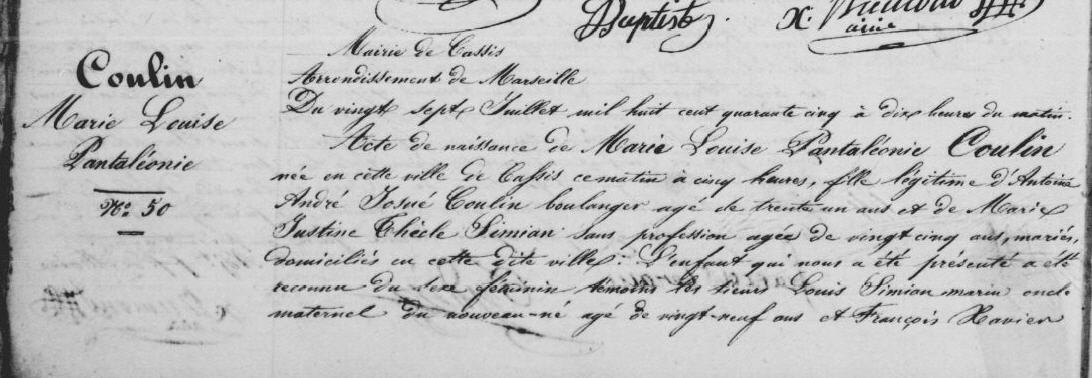 Baptiste.
ainé
Coulin
Marie Louise
Pantaléonie
No. 50
Mairie de Cassis
Arrondissement de Marseille
Du vingt sept Juillet mil huit cent quarante cinq à dix heures du matin.
Acte de naissance de Marie Louise Pantaléonie Coulin
née en cette ville de Cassis ce matin à cinq heures, fille légitime d'Antoine
André Josué Coulin boulanger agé de trente un ans et de Marie
Justine Thècle Simian sans profession agée de vingt cinq ans, mariés,
domiciliés en cette dite ville. L'enfant qui nous a été présenté a été
reconnu du sexe féminin témoins les sieurs Louis Simian marin oncle
maternel du nouveau-né agé de vingt-neuf ans et François Xavier